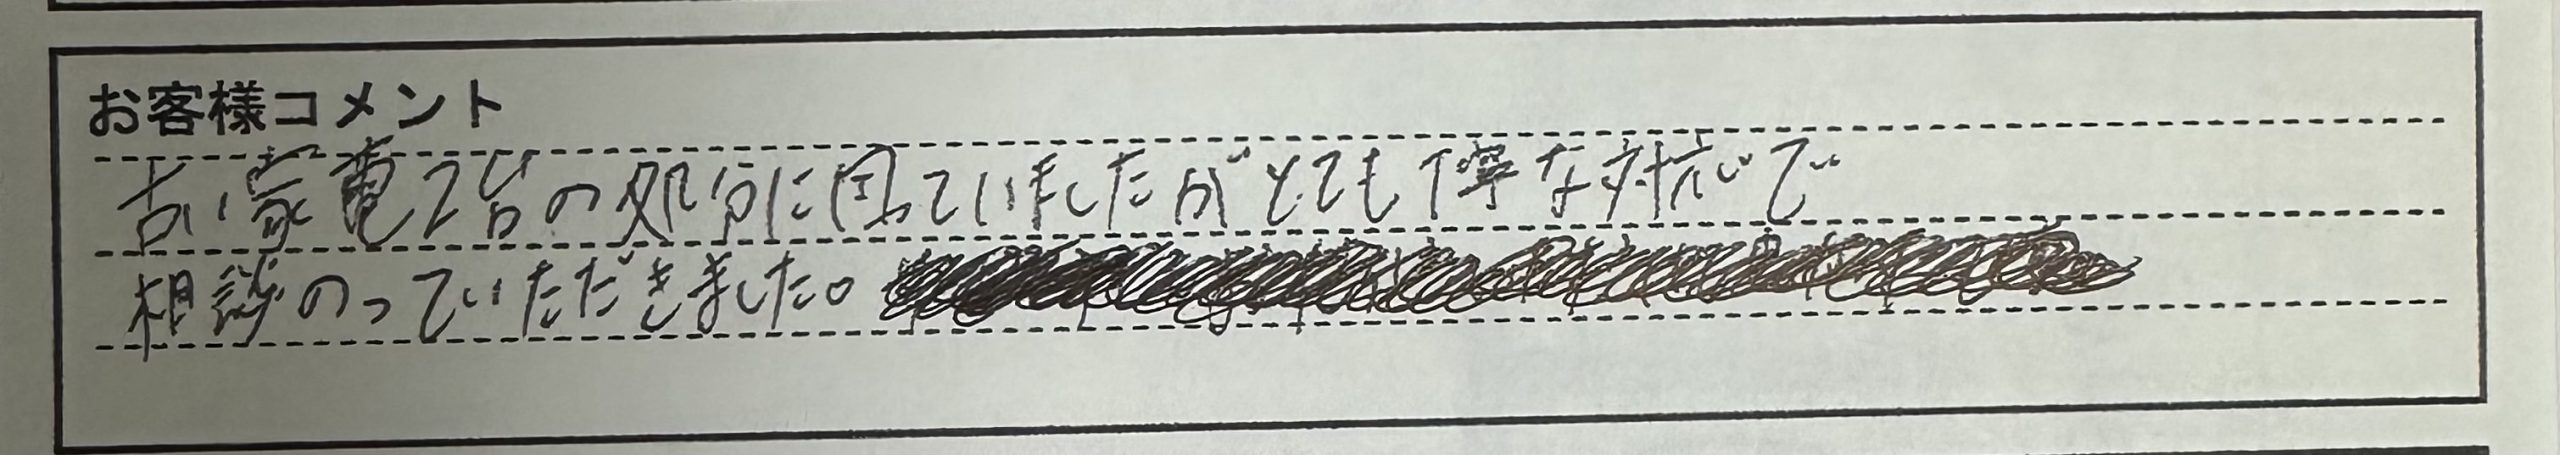 お客様コメント
古い家電2台の処分に困っていましたがとても丁寧な対応で
相談のっていただきました。